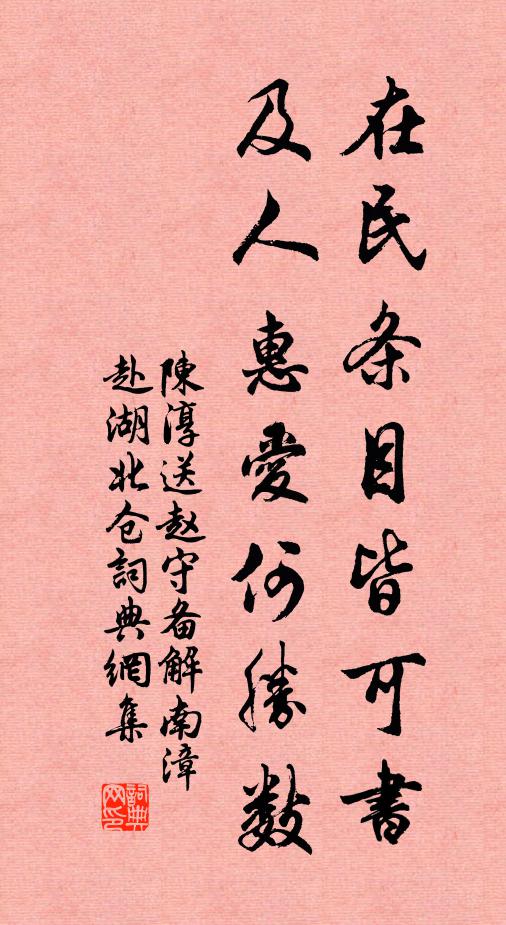 在民条目皆可書
及人惠愛何勝數
陳淳送赵守备解南漳
赴湖北仓詞典網集
詞典
网印